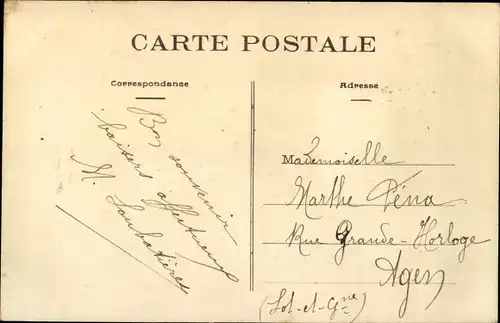 CARTE POSTALE
Correspondance
Adresse
Bon souvenir
baisers affectueux
M. Lombatières
Mademoiselle
Marthe Péna
Rue Grande-Horloge
Agen
(Lot-et-Gne)